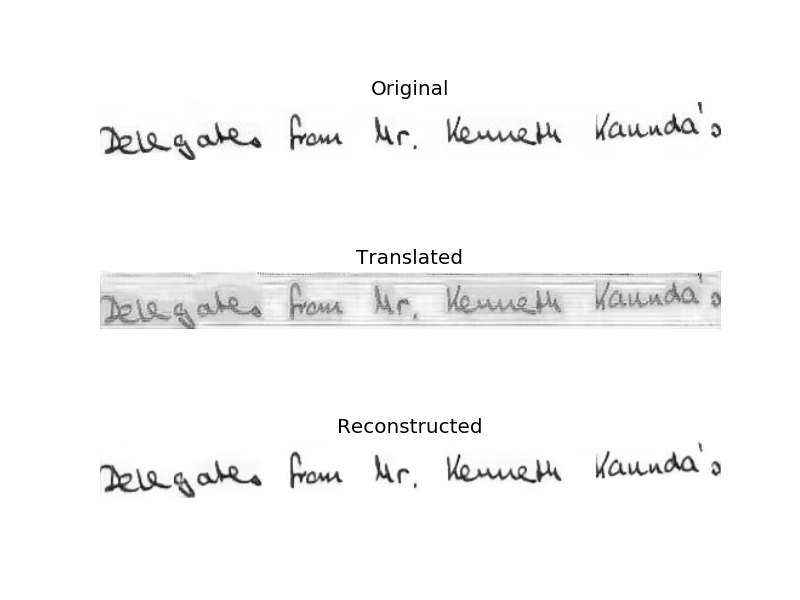 Original
Delegates from Mr. Kenneth Kaunda's
Translated
Delegates from Mr. Kenneth Kaunda's
Reconstructed
Delegates from Mr. Kenneth Kaunda's